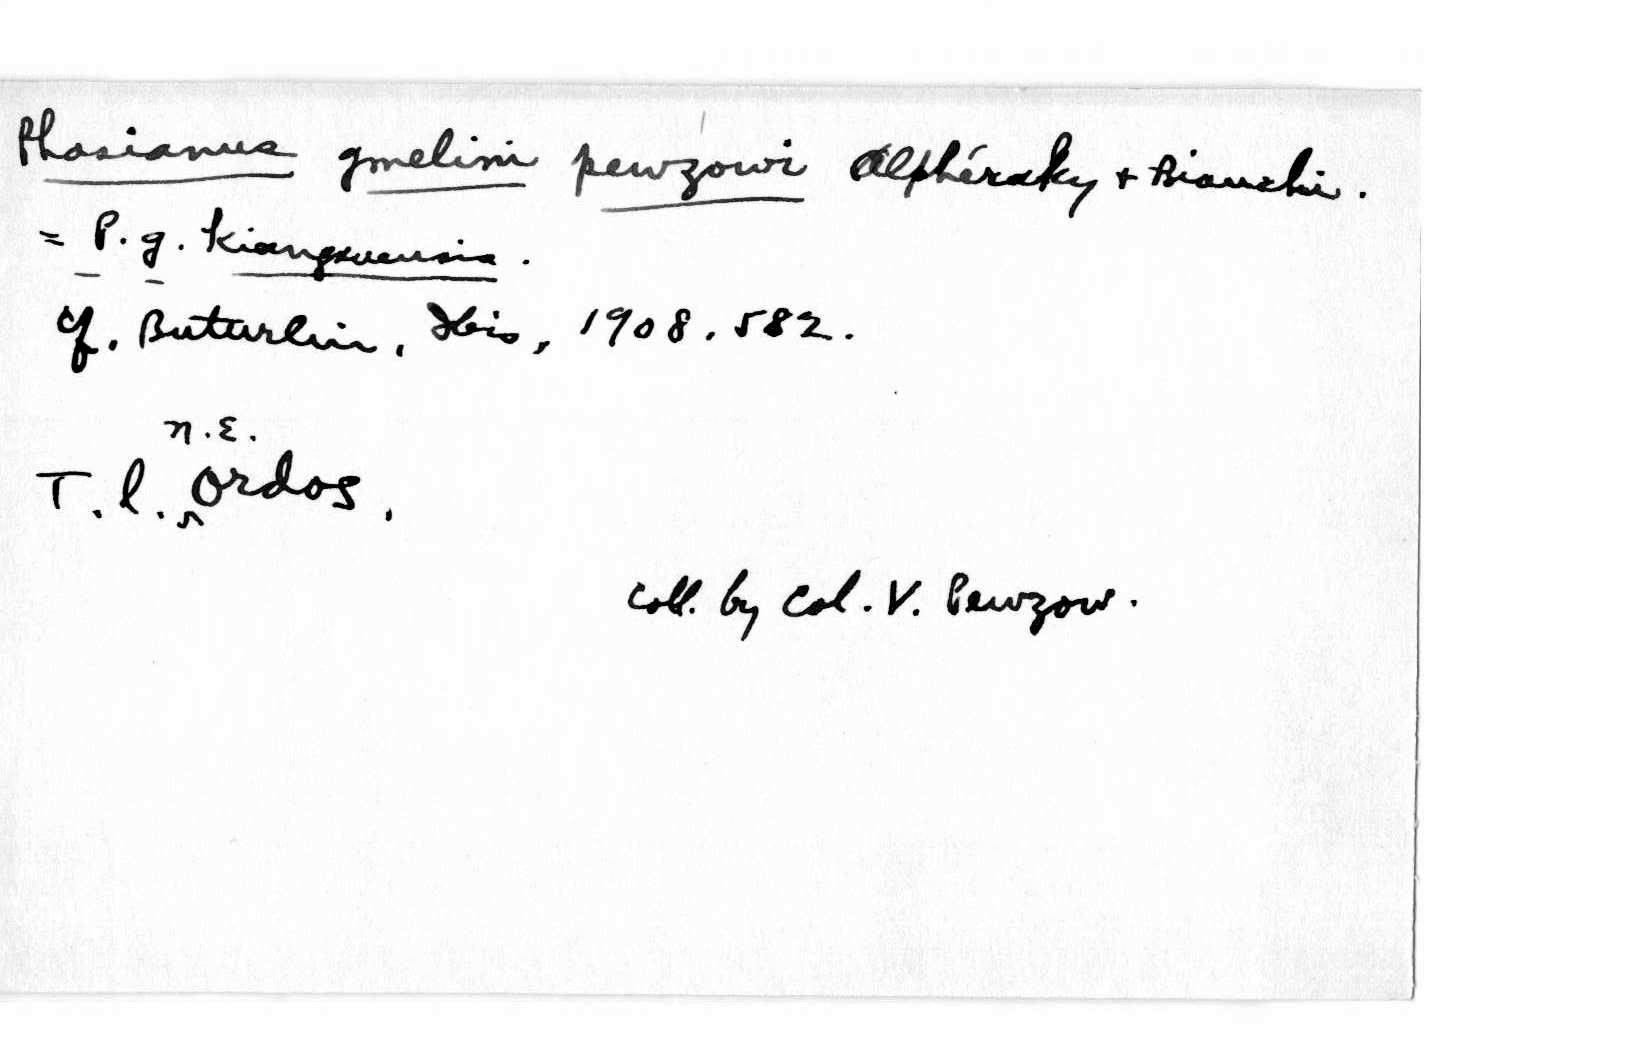 Phasianus gmelini pewzowi Alphéraky + Bianchi.
= P. g. kiangsuensis.
cf. Buturlin, Ibis, 1908. 582.
T. l. N.E. Ordos.
Coll. by Col. V. Pewzow.